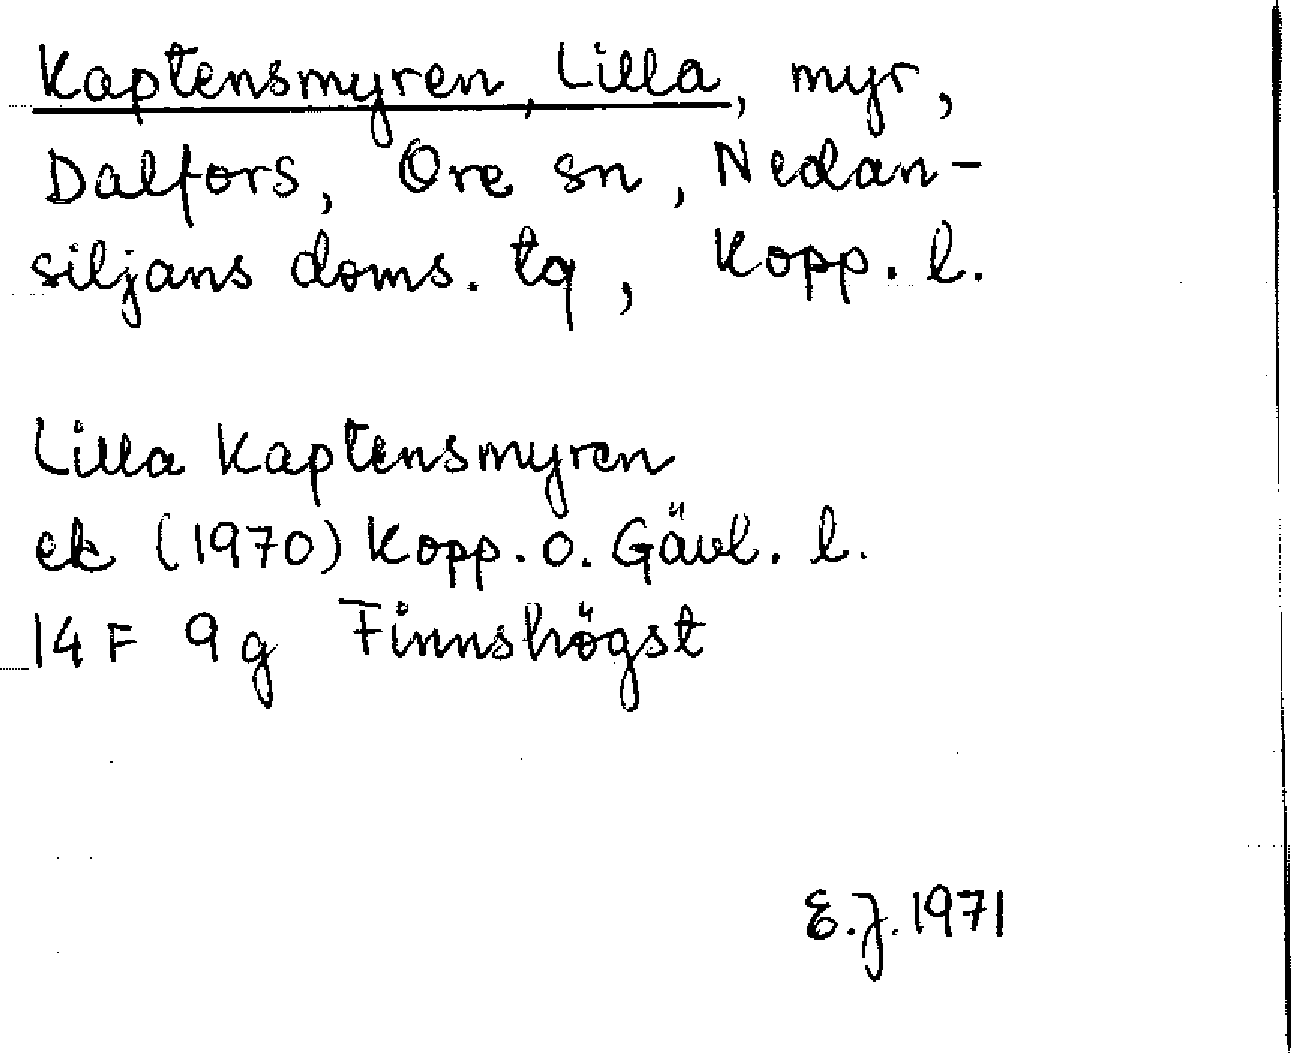 Kaptensmyren, Lilla, myr,
Dalfors, Ore sn, Nedan-
siljans doms. tq, Kopp. l.
Lilla Kaptensmyren
ek (1970) Kopp. o. Gävl. l.
14 F 9 g Finnshögst
E.J. 1971